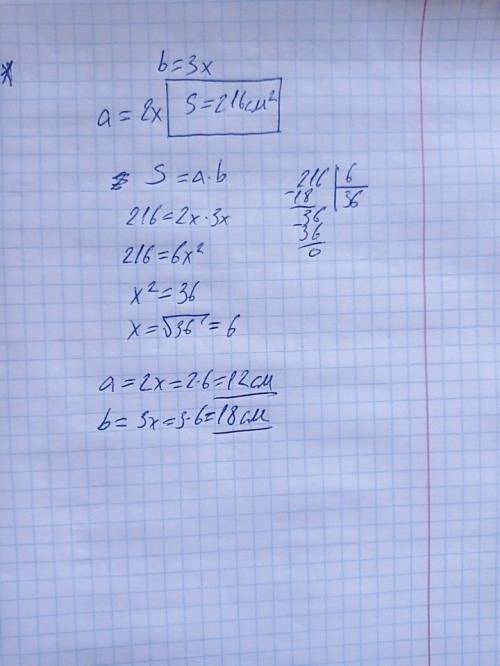 b=3x
a = 2x S=216см²
S =a·b
216=2x·3x
216=6x²
x²=36
x=√36=6
216 6
-18 36
36
-36
0
a=2x=2·6=12см
b= 3x=3·6=18см